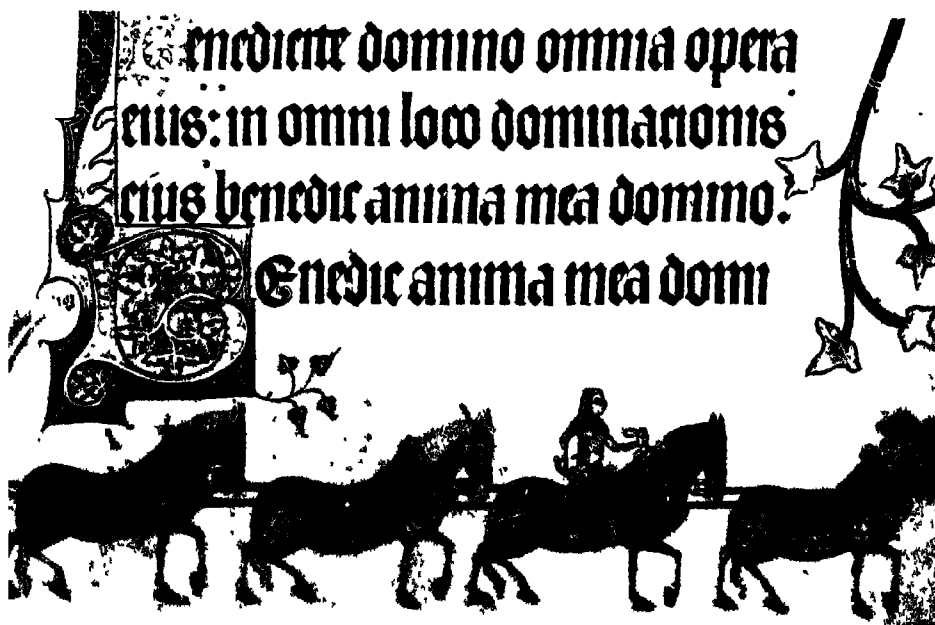 Benedicite domino omnia opera
eius: in omni loco dominacionis
eius benedic anima mea domino.
BEnedic anima mea domi